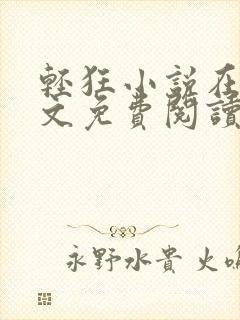 輕狂小說在
文免費閱讀
永野水貴 火鳴